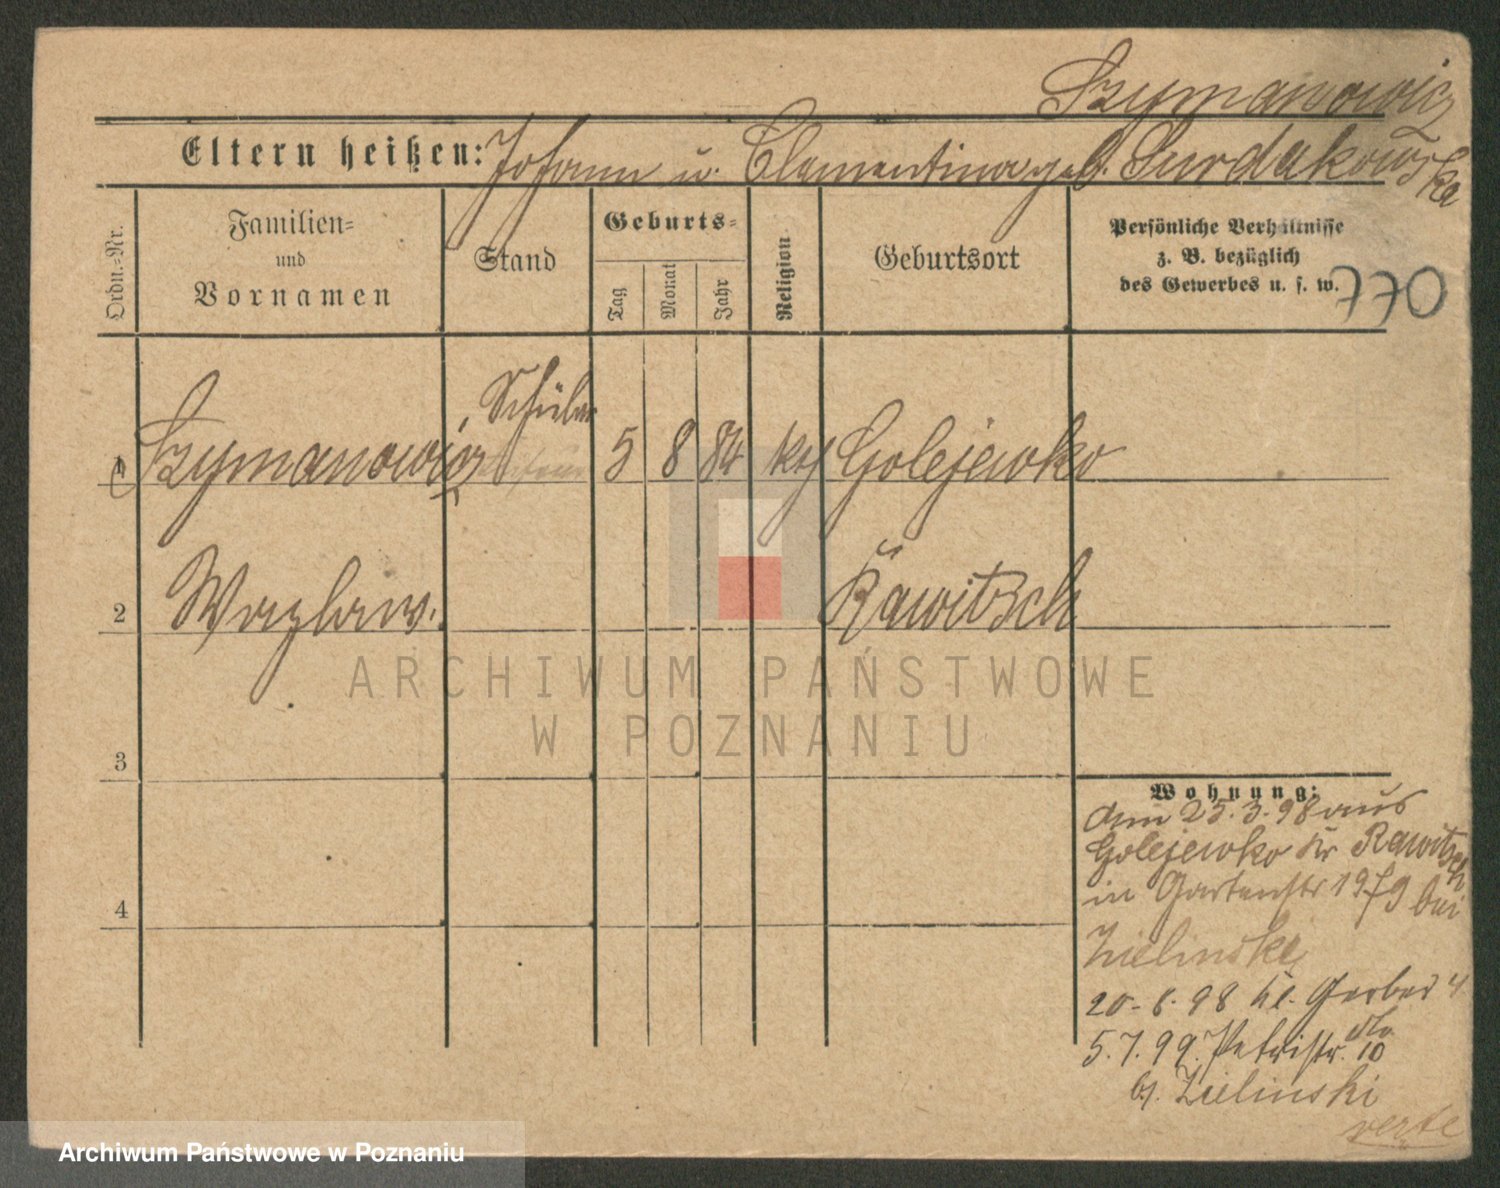 Szymanowicz
Eltern heißen: Johann u. Clementina geb. Surdakowska
Ordn.-Nr.
Familien-
und
Vornamen
Stand
Geburts-
Tag
Monat
Jahr
Religion
Geburtsort
Persönliche Verhältnisse
z. B. bezüglich
des Gewerbes u. s. w.
770
1 Szymanowicz Schüler 5 8 84 kth Golejewko
2 Wazlaw. Rawitsch
3
4
Wohnung:
am 25.3.98 aus
Golejewko Kr Rawitsch
in Gartenstr 19 bei
Zielinski
20.6.98 kl. Gerber 4
5.7.99. Petristr. 10
b. Zielinski
verte
ARCHIWUM PAŃSTWOWE
W POZNANIU
Archiwum Państwowe w Poznaniu